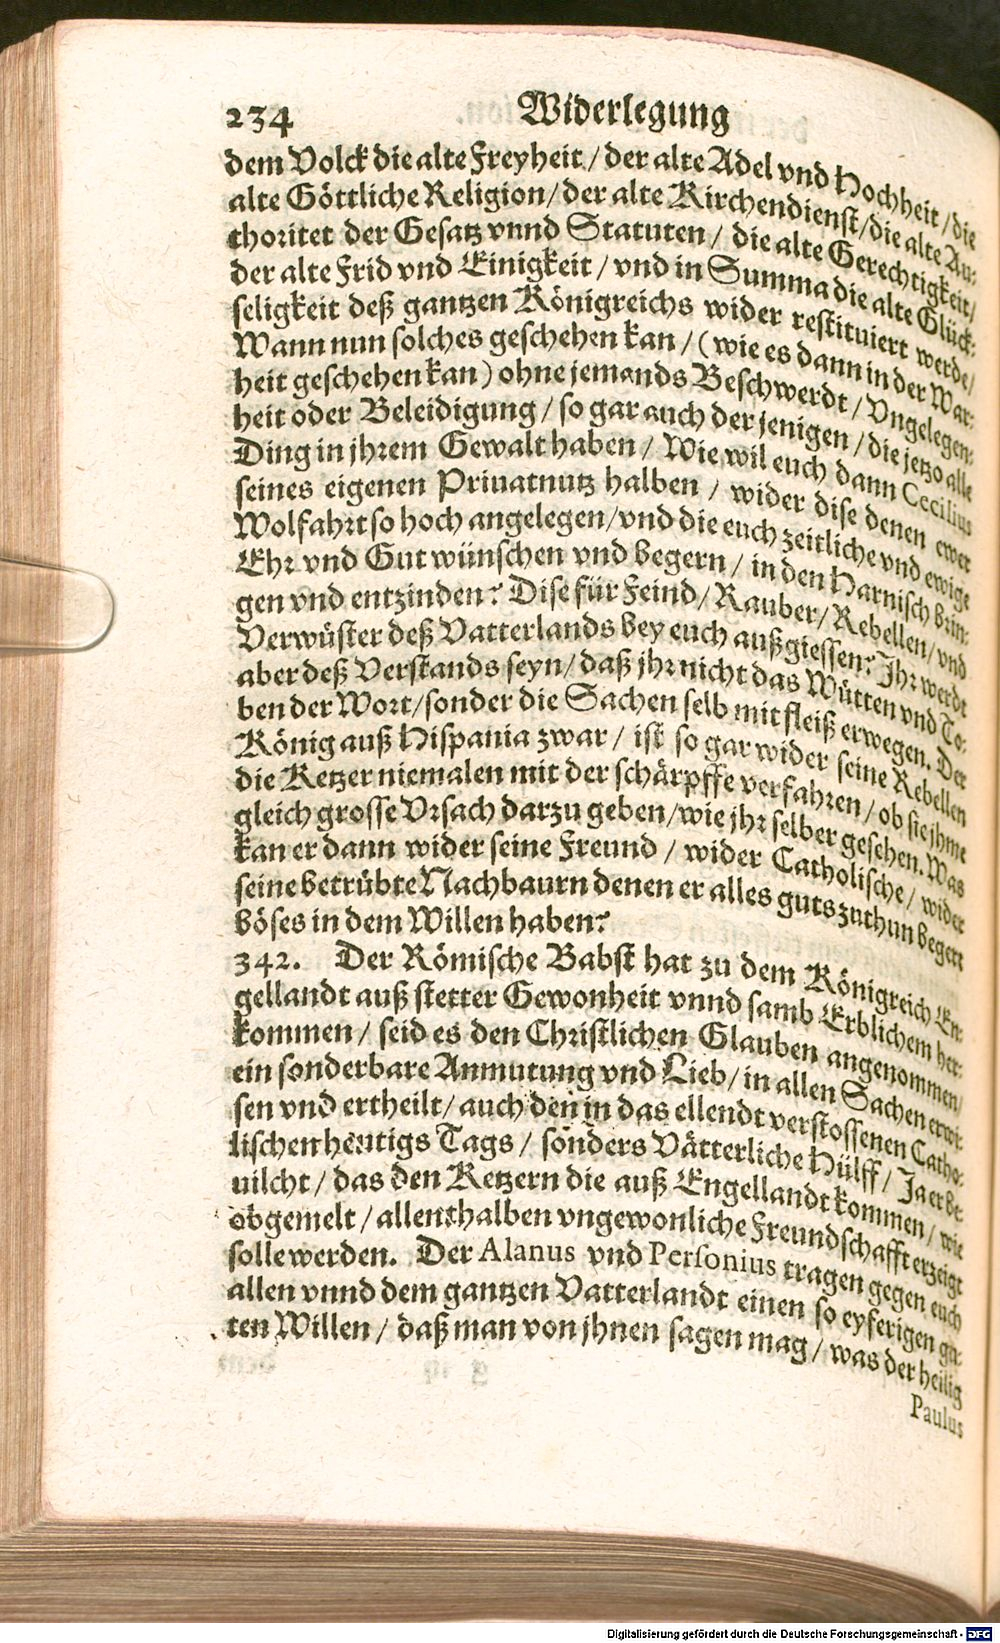 234 Widerlegung
dem Volck die alte Freyheit / der alte Adel vnd Hochheit / die
alte Göttliche Religion / der alte Kirchendienst / die alte Au-
thoritet der Gesatz vnnd Statuten / die alte Gerechtigkeit /
der alte Frid vnd Einigkeit / vnd in Summa die alte Glück-
seligkeit deß gantzen Königreichs wider restituiert werde /
Wann nun solches geschehen kan / (wie es dann in der War-
heit geschehen kan) ohne jemands Beschwerdt / Vngelegen-
heit oder Beleidigung / so gar auch der jenigen / die jetzo alle
Ding in jhrem Gewalt haben / Wie wil euch dann Cecilius
seines eigenen Priuatnutz halben / wider dise denen ewer
Wolfahrt so hoch angelegen / vnd die euch zeitliche vnd ewige
Ehr vnd Gut wünschen vnd begern / in den Harnisch brin-
gen vnd entzinden? Dise für Feind / Rauber / Rebellen / vnd
Verwüster deß Vatterlands bey euch außgiessen? Jhr werdt
aber deß Verstands seyn / daß jhr nicht das Wütten vnd To-
ben der Wort / sonder die Sachen selb mit fleiß erwegen. Der
König auß Hispania zwar / ist so gar wider seine Rebellen
die Ketzer niemalen mit der schärpffe verfahren / ob sie jhme
gleich grosse Vrsach darzu geben / wie jhr selber gesehen. Was
kan er dann wider seine Freund / wider Catholische / wider
seine betrübte Nachbaurn denen er alles guts zuthun begert
böses in dem Willen haben?
342. Der Römische Babst hat zu dem Königreich En-
gellandt auß stetter Gewonheit vnnd samb Erblichem her-
kommen / seid es den Christlichen Glauben angenommen /
ein sonderbare Anmutung vnd Lieb / in allen Sachen erwi-
sen vnd ertheilt / auch den in das ellendt verstossenen Catho-
lischen heutigs Tags / sonders Vätterliche Hülff / Ja er be-
uilcht / das den Ketzern die auß Engellandt kommen / wie
obgemelt / allenthalben vngewonliche Freundschafft erzeigt
solle werden. Der Alanus vnd Personius tragen gegen euch
allen vnnd dem gantzen Vatterlandt einen so eyferigen gu-
ten Willen / daß man von jhnen sagen mag / was der heilig
Paulus
Digitalisierung gefördert durch die Deutsche Forschungsgemeinschaft - DFG